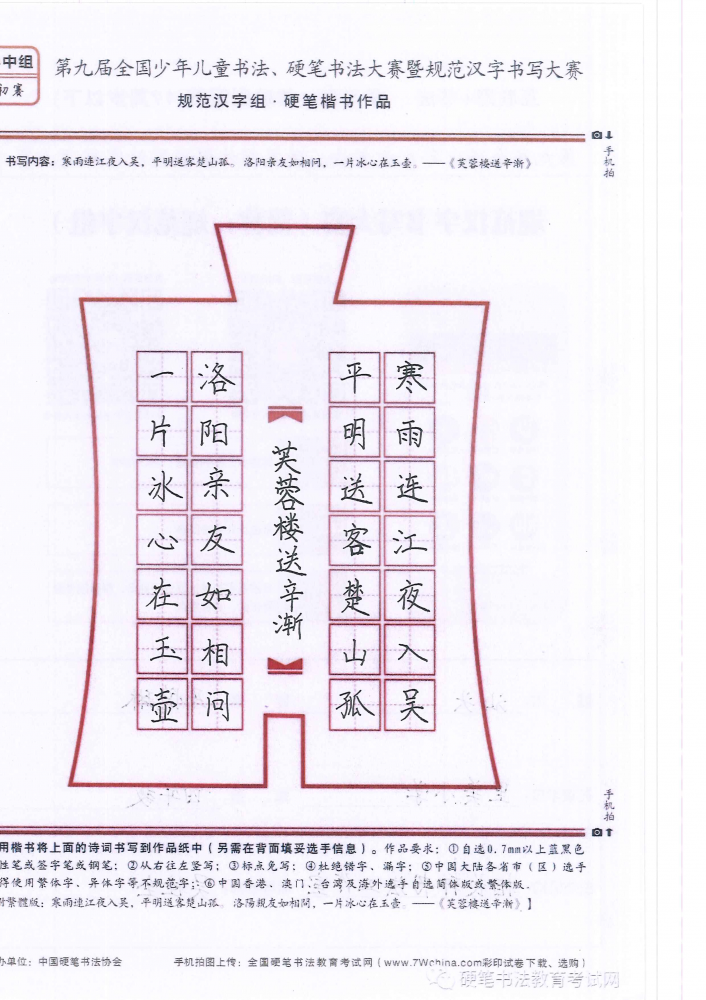 中组
初赛
第九届全国少年儿童书法、硬笔书法大赛暨规范汉字书写大赛
规范汉字组·硬笔楷书作品
手机拍
书写内容：寒雨连江夜入吴，平明送客楚山孤。洛阳亲友如相问，一片冰心在玉壶。——《芙蓉楼送辛渐》
寒雨连江夜入吴
平明送客楚山孤
芙蓉楼送辛渐
洛阳亲友如相问
一片冰心在玉壶
手机拍
用楷书将上面的诗词书写到作品纸中（另需在背面填妥选手信息）。作品要求：①自选0.7mm以上蓝黑色
性笔或签字笔或钢笔；②从右往左竖写；③标点免写；④杜绝错字、漏字；⑤中国大陆各省市（区）选手
得使用繁体字、异体字等不规范字；⑥中国香港、澳门、台湾及海外选手自选简体版或繁体版。
附繁體版：寒雨連江夜入吳，平明送客楚山孤。洛陽親友如相問，一片冰心在玉壺。——《芙蓉樓送辛漸》】
办单位：中国硬笔书法协会
手机拍图上传：全国硬笔书法教育考试网（www.7Wchina.com彩印试卷下载、选购）
硬笔书法教育考试网